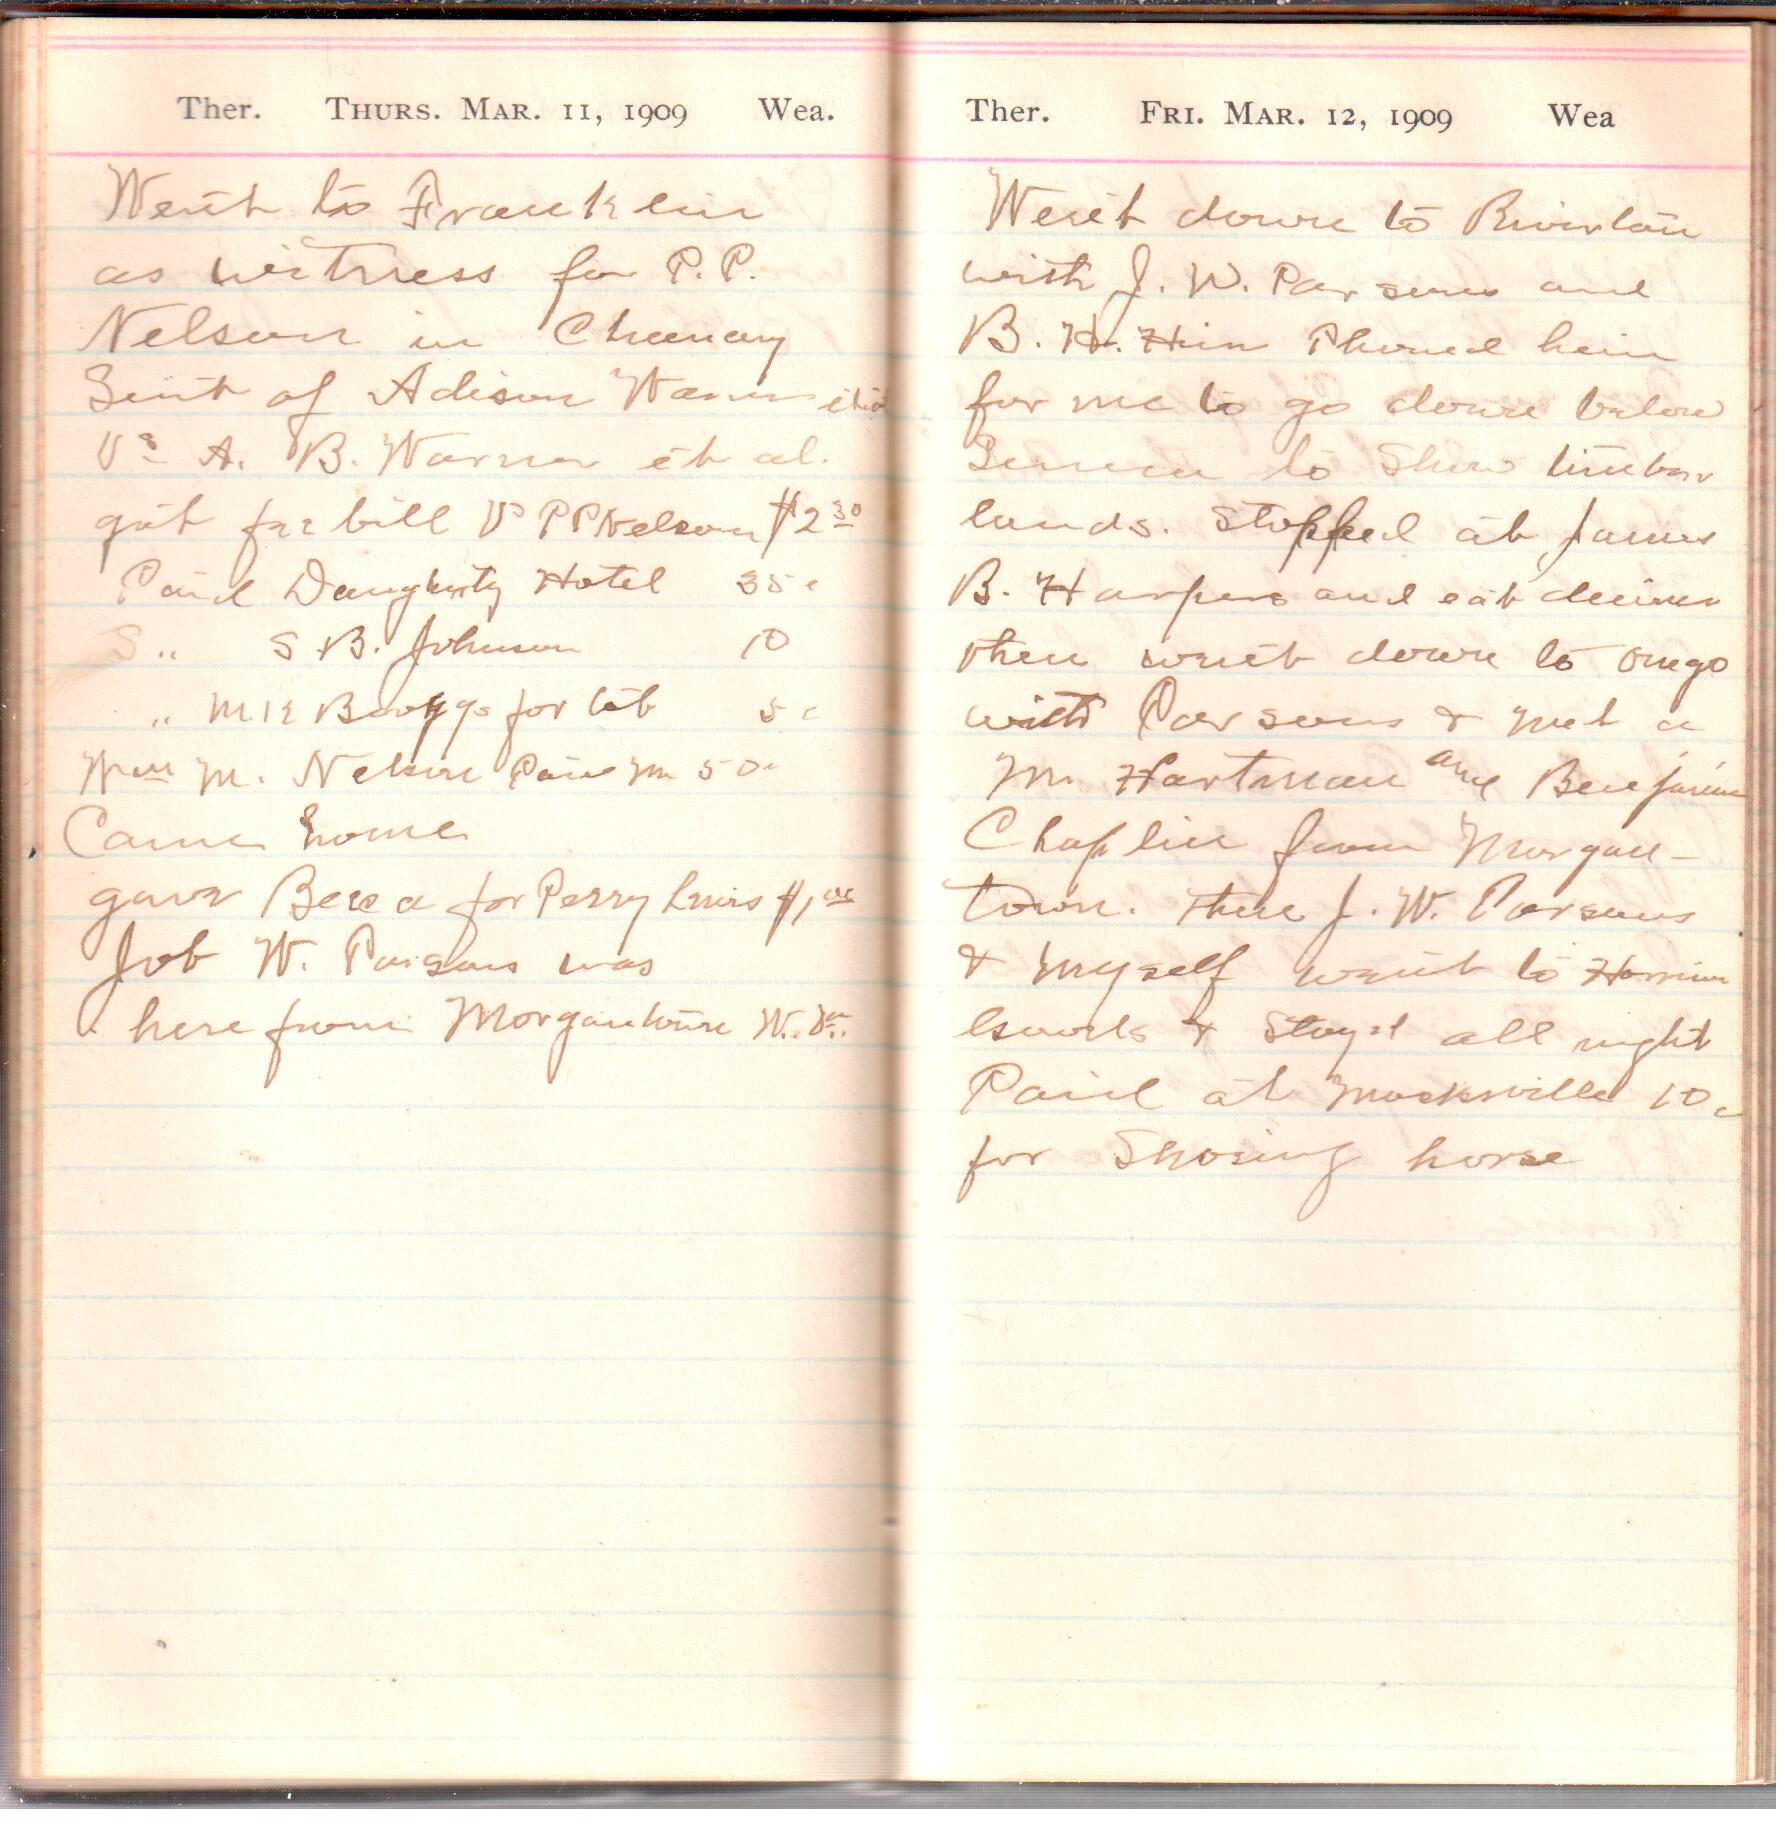 Ther. THURS. MAR. 11, 1909 Wea.
Went to Franklin
as witness for P.P.
Nelson in Chancery
Suit of Adison Warner
Vs A. B. Warner et al.
got fee bill Vs P P Nelson $2 30
Paid Daugherty Hotel 35 c
" S. B. Johnson 10
" Boggs for 5 c
Wm M. Nelson Paid Me 50 c
Came home
gave Beca for Perry Lewis $1,00
Job W. Parsons was
here from Morgantown W. Va.
Ther. FRI. MAR. 12, 1909 Wea
Went down to Riverton
with J. W. Parsons and
B. H. Phoned him
for me to go down below
Seneca to Show timber
lands. Stopped at James
B. Harpers and eat dinner
then went down to Onego
with Parsons & met a
Mr Hartman and Benjamin
Chaplin from Morgan-
town. then J. W. Parsons
& myself went to Harmon
& Stayd all night
Paid at Macksville 10 c
for Shoeing horse